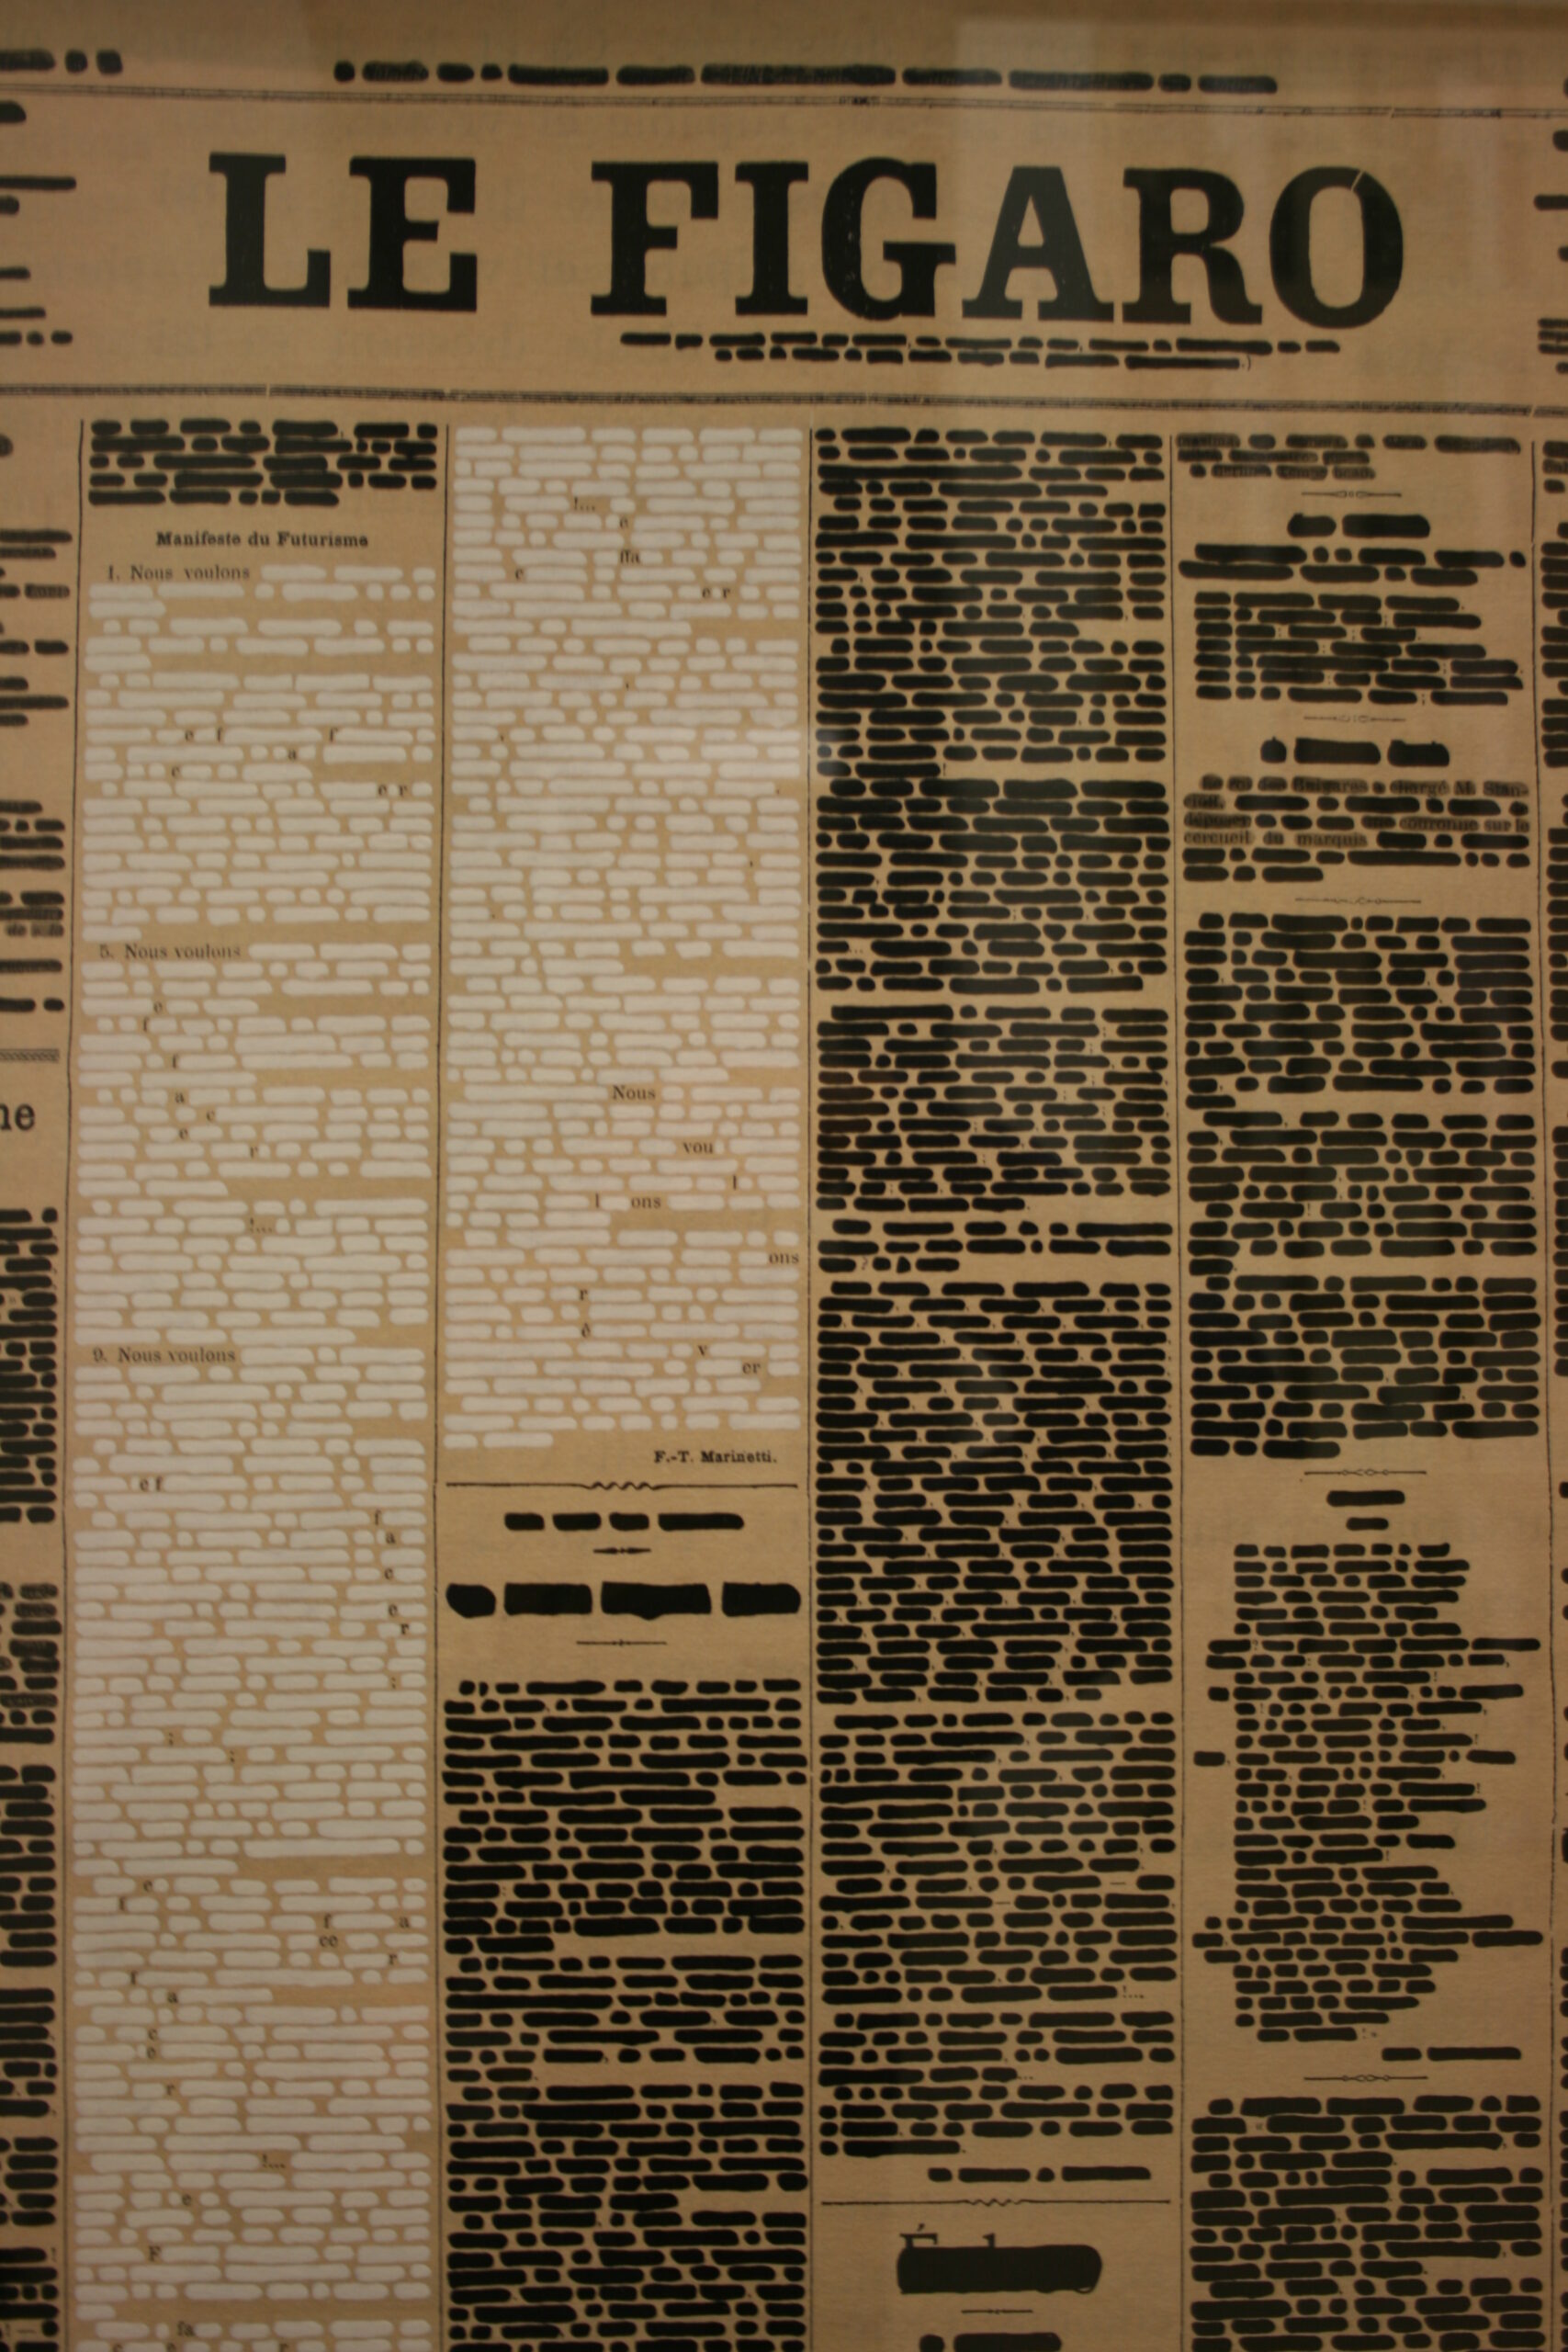 LE FIGARO
Manifeste du Futurisme
1. Nous voulons
e f f
a
c
e r
5. Nous voulons
e
f
f
a
c
e
r
!...
9. Nous voulons
e f
f
a
c
e
r
:
:
:
e
f
f a
ce
r
f
a
c
e
r
!...
e
F
fa
c e r
!...
e
ffa
c
e r
Nous
vou
l
l ons
ons
r
ê
v
er
F.-T. Marinetti.
!...
a chargé M. Stan-
couronne sur le
cercueil du marquis
ne